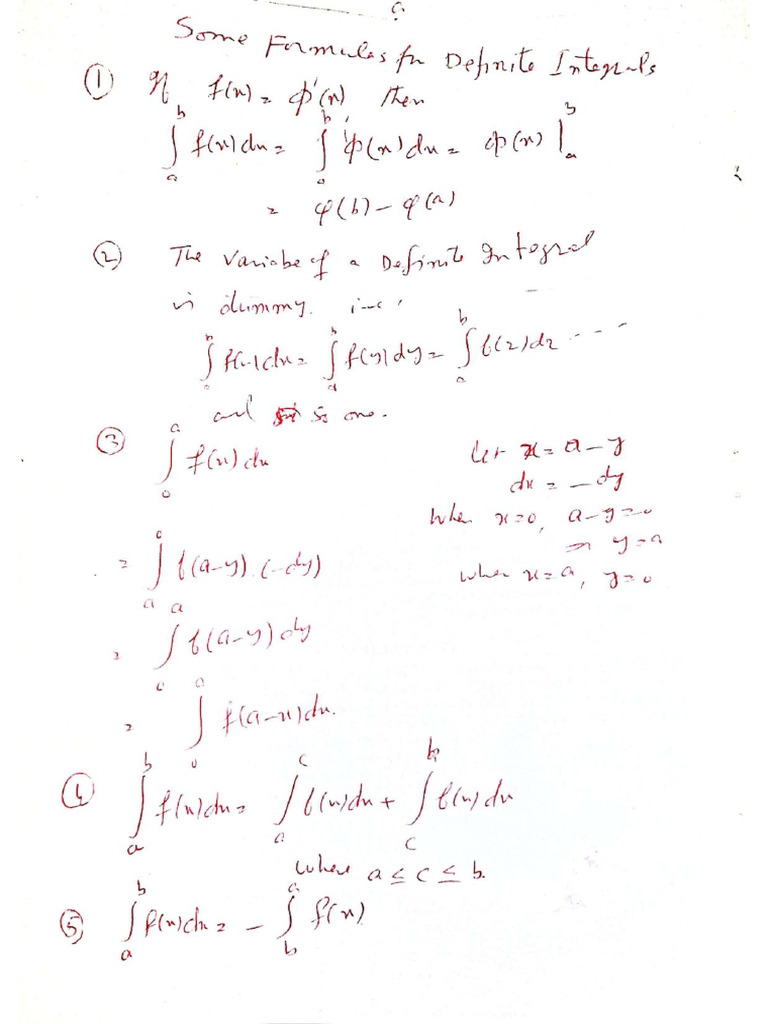 Some Formulas for Definite Integrals
① If f(x) = φ'(x) then
∫_a^b f(x) dx = ∫_a^b φ'(x) dx = φ(x) |_a^b
= φ(b) − φ(a)
② The Variabe of a Definite Integral
is dummy. i.e.
∫_a^b f(x) dx = ∫_a^b f(y) dy = ∫_a^b f(z) dz ...
and so one.
③ ∫_0^a f(x) dx
Let x = a − y
dx = − dy
When x = 0, a − y = 0
⇒ y = a
when x = a, y = 0
= ∫_a^0 f(a−y) (−dy)
= ∫_0^a f(a−y) dy
= ∫_0^a f(a−x) dx.
④ ∫_a^b f(x) dx = ∫_a^c f(x) dx + ∫_c^b f(x) dx
where a ≤ c ≤ b.
⑤ ∫_a^b f(x) dx = − ∫_b^a f(x)